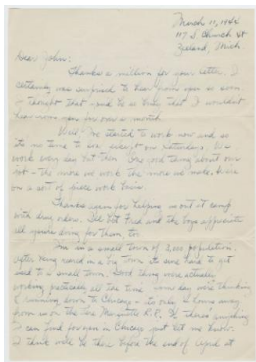 March 11, 1944
117 S. Church St
Zeeland, Mich
Dear John:
Thanks a million for your letter. I
certainly was surprised to hear from you so soon.
I thought that you'd be so busy that I wouldn't
hear from you for over a month.
Well I've started to work now and so
no time to
work every day but Sun. One good thing about our
job - the more we work the more we make, because
on a sort of piece work basis.
Thanks again for helping us out at camp
with
all you're doing for them to.
is a small town of 3,000 population.
After being raised in a big town its sure hard to get
used to a small town. Good thing we're actually
working practically all the time. Some day we're thinking
of running down to Chicago - its only 4 hours away
from us on the Pere Marquette R.R. If there's anything
I can send for you in Chicago just let me know.
I think we'll be there before the end of April at